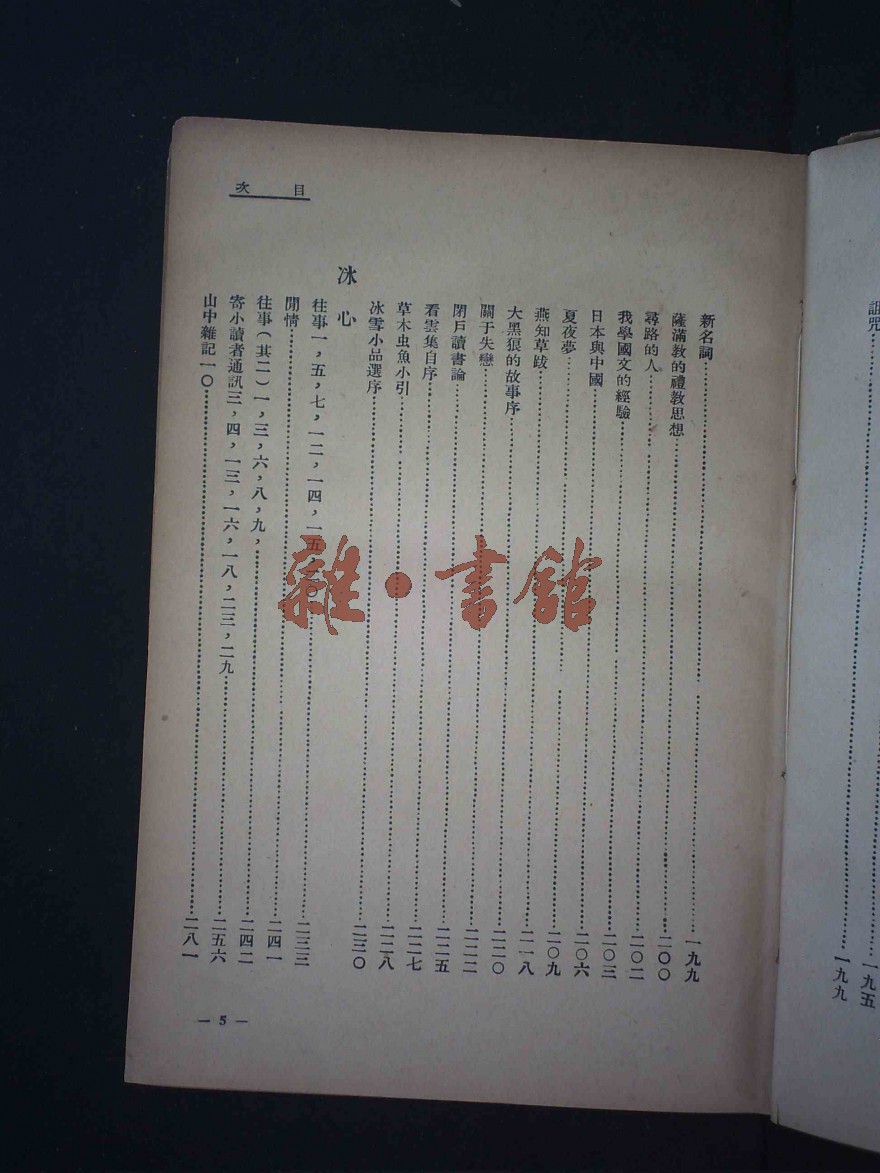 一九五
詛咒……一九九
目次
新名詞……一九九
薩滿教的禮教思想……二〇〇
尋路的人……二〇二
我學國文的經驗……二〇三
日本與中國……二〇六
夏夜夢……二〇九
燕知草跋……二一八
大黑狼的故事序……二二〇
關于失戀……二二二
閉戶讀書論……二二五
看雲集自序……二二七
草木虫魚小引……二二八
冰雪小品選序……二三〇
冰心
往事一，五，七，一二，一四，一五，……二三三
閒情……二四一
往事（其二）一，三，六，八，九，……二四二
寄小讀者通訊三，四，一三，一六，一八，二三，二九……二五六
山中雜記一〇……二八一
— 5 —
雜·書館